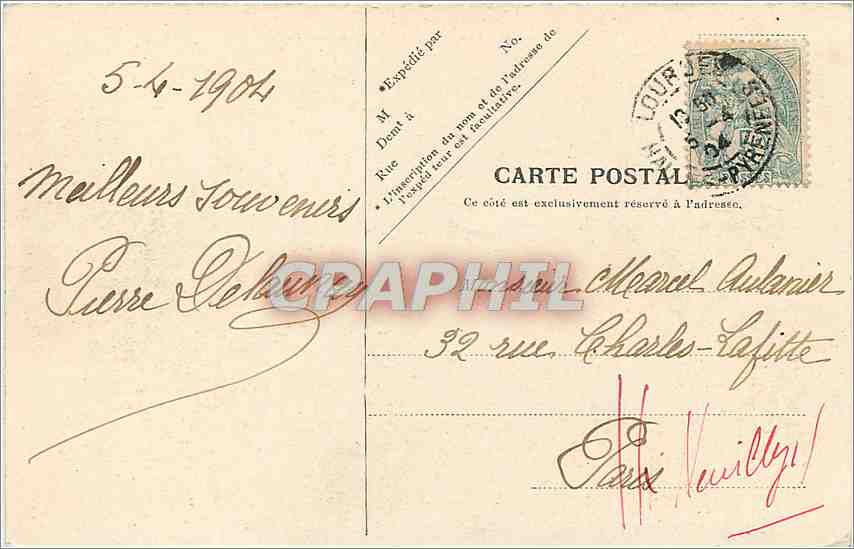 5-4-1904
Meilleurs souvenirs
Pierre Delaunay
No.
•Expédié par
M
Demt à
Rue
•L'inscription du nom et de l'adresse de
l'expéditeur est facultative.
LOURDES
13 50
5 -4
04
PYRENEES
CARTE POSTALE
Ce côté est exclusivement réservé à l'adresse.
CRAPHIL
Monsieur Marcel Aulanier
32 rue Charles-Lafitte
Paris
Neuilly s/